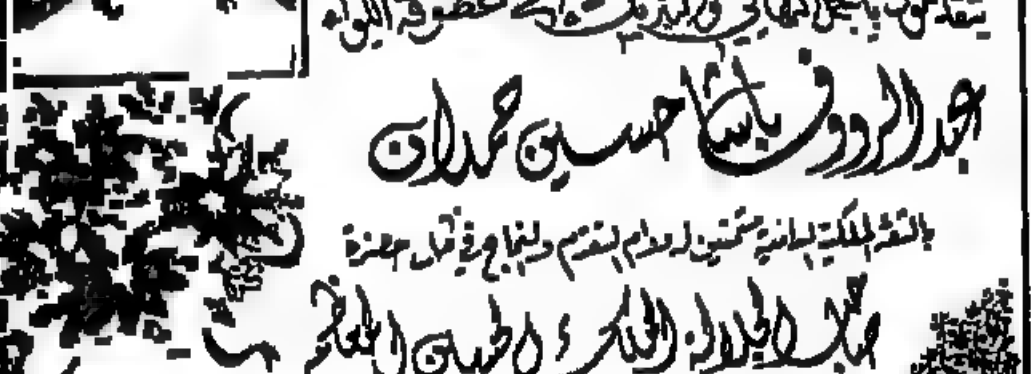 يتقدمون بأجمل التهاني والتبريك لعطوفة اللواء
عبد الرؤوف باشا حسين حمدان
بالثقة الملكية السامية متمنين له دوام التقدم والنجاح في ظل حضرة
صاحب الجلالة الملك الحسين المعظم